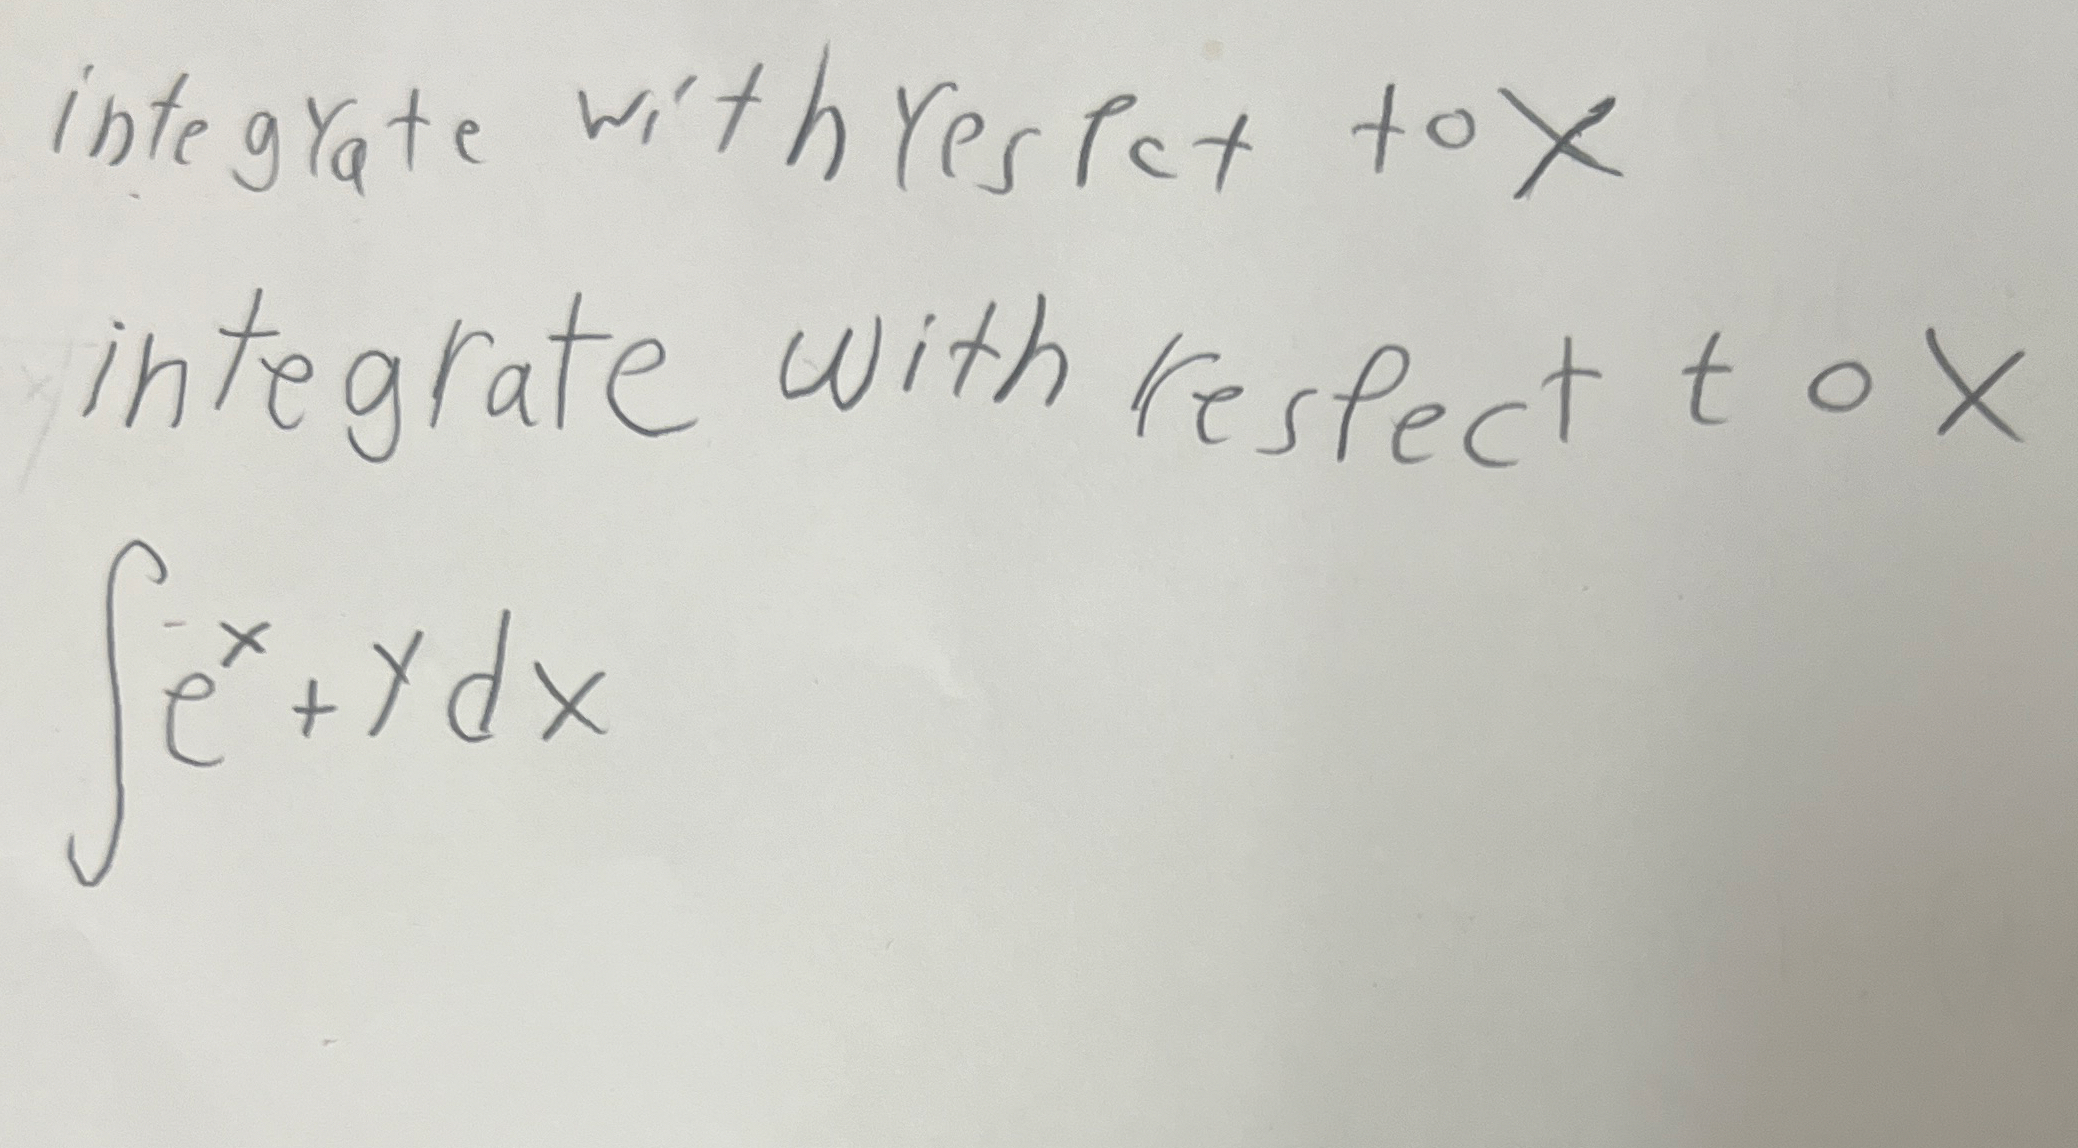 integrate with respct to x
integrate with respect to x
∫ e^x + y dx